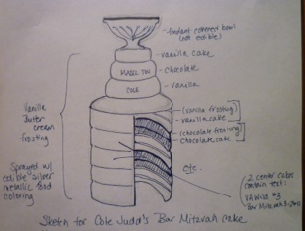 (not edible)
vanilla cake
MAZEL TOV
chocolate
COLE
vanilla
Vanilla
Butter
cream
frosting
(vanilla frosting)
vanilla cake
(chocolate frosting)
chocolate cake
etc.
Sprayed w/
edible "silver"
metallic food
coloring
2 center cakes
contain text:
Bar Mitzvah
Sketch for Cole Judd's Bar Mitzvah cake